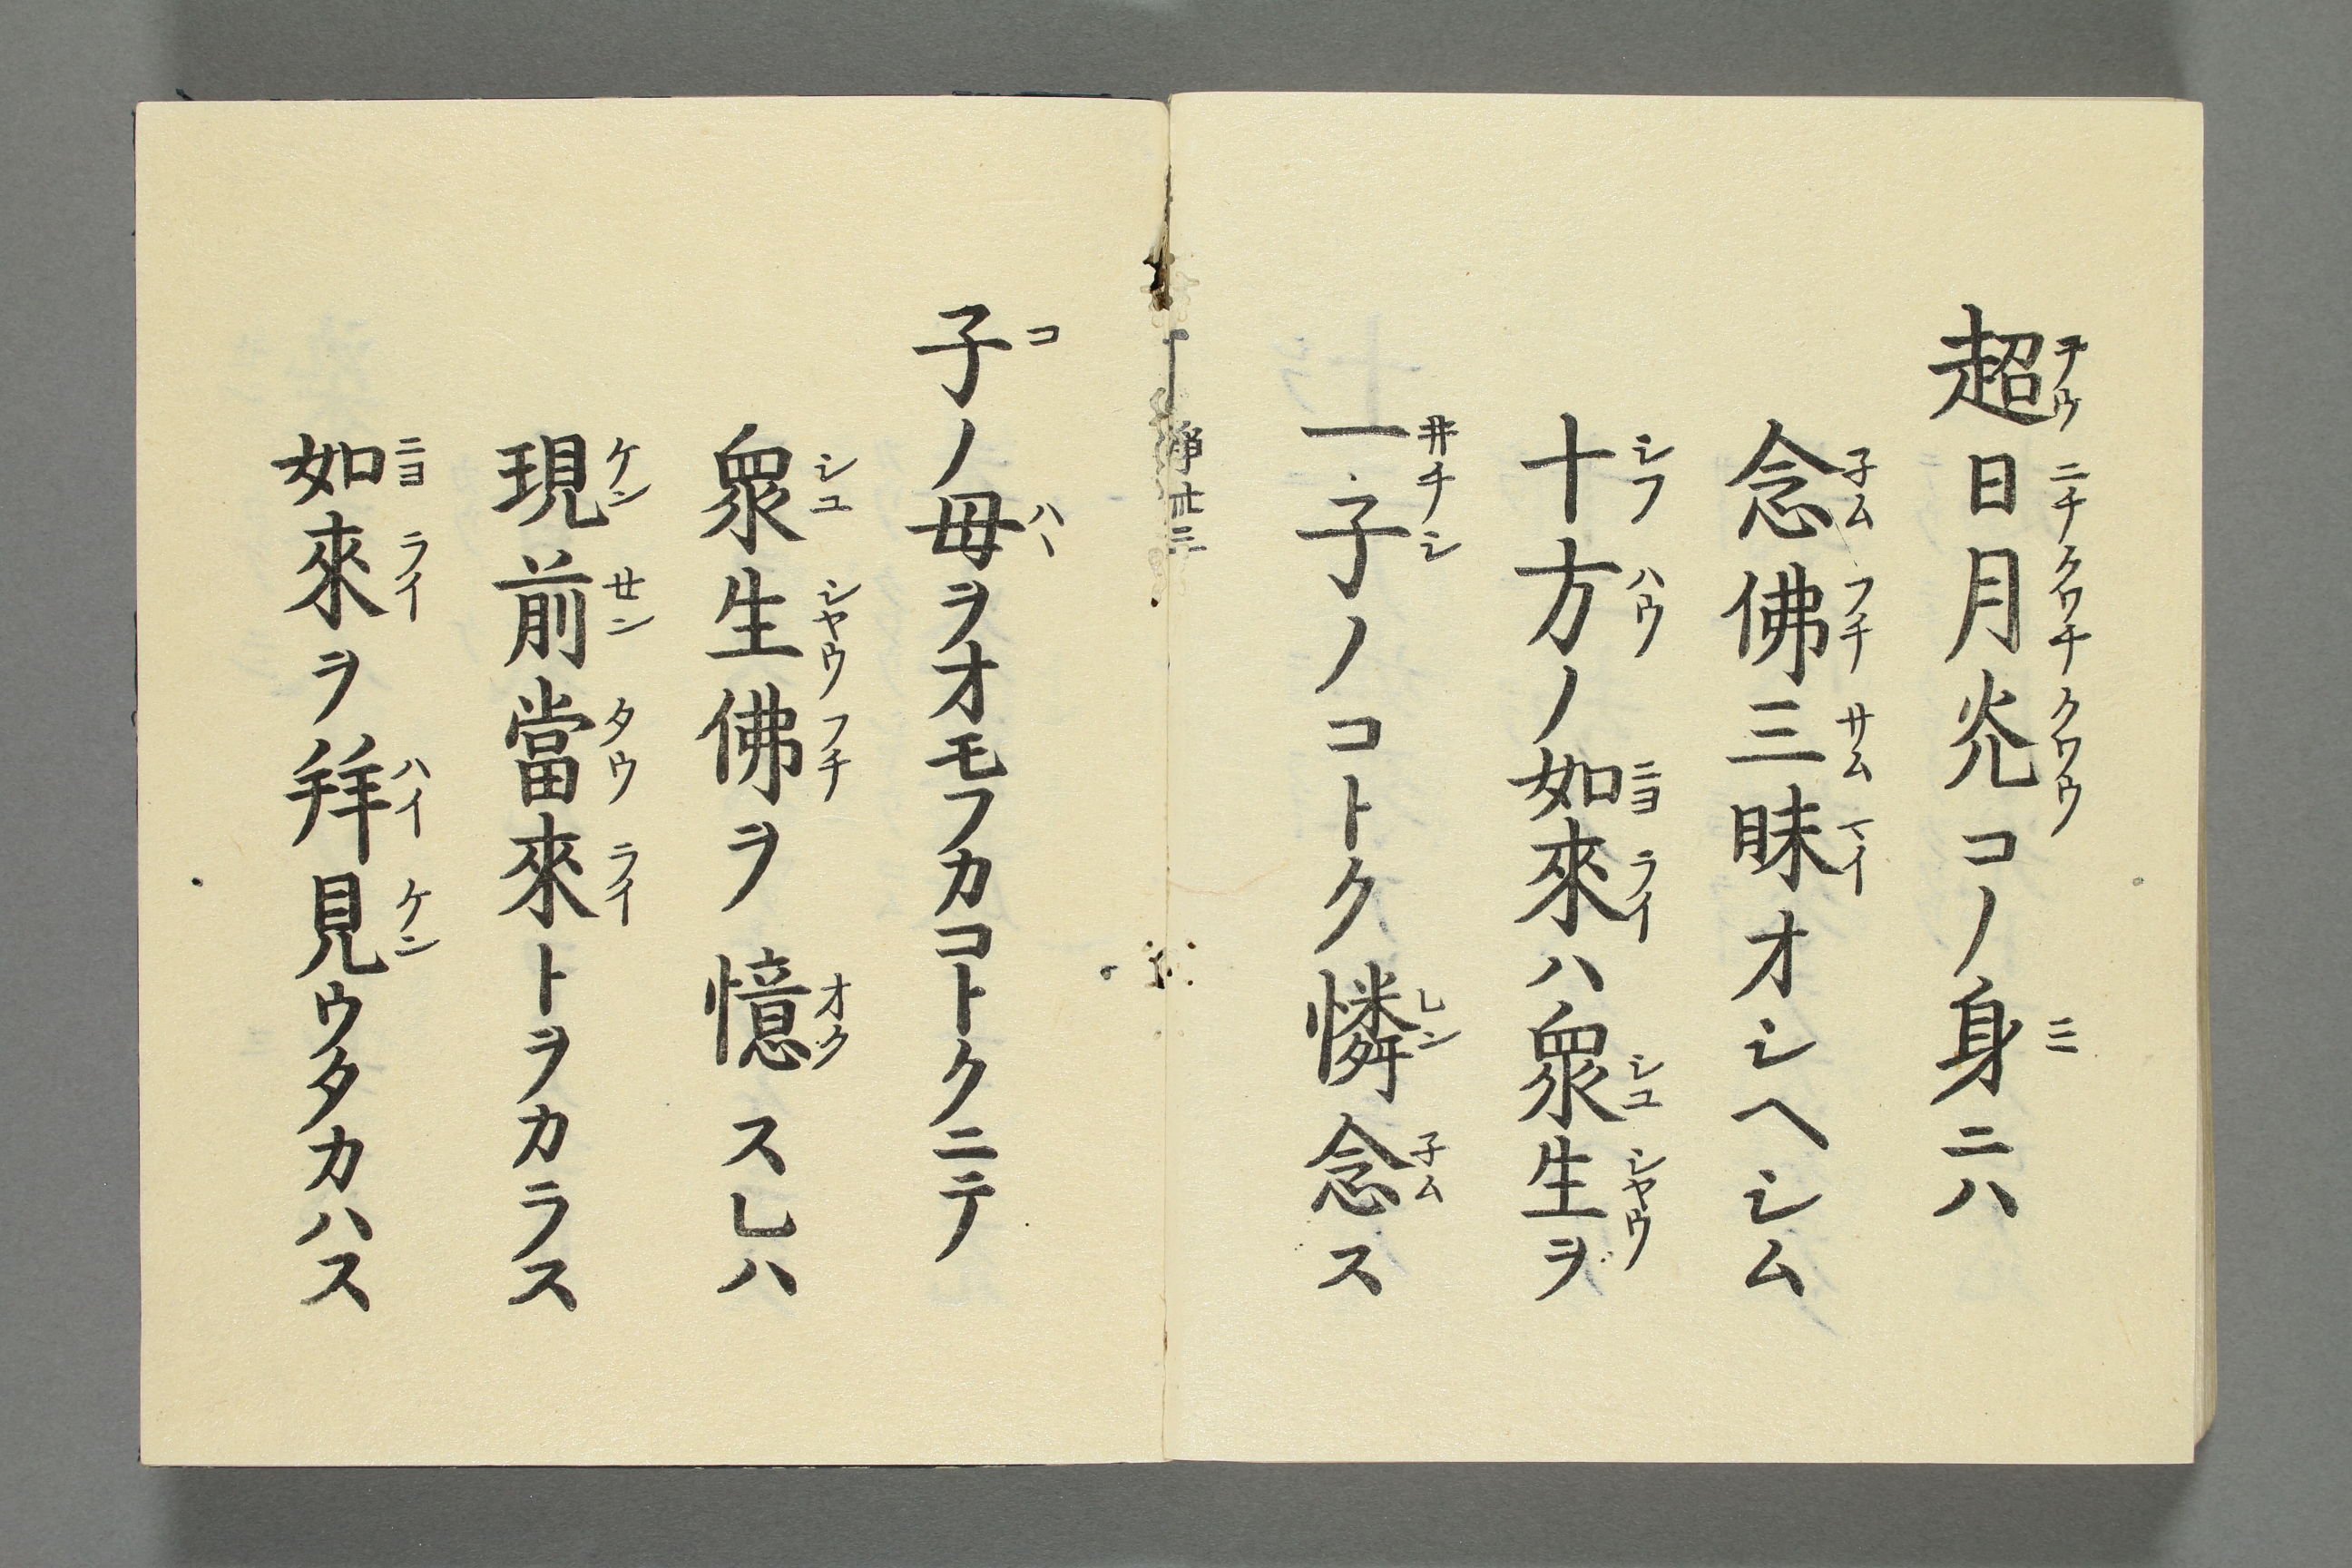 超日月灮コノ身ニハ
念佛三昧オシヘシム
十方ノ如來ハ衆生ヲ
一子ノコトク憐念ス
淨 廿三
子ノ母ヲオモフカコトクニテ
衆生佛ヲ憶スレハ
現前當來トヲカラス
如來ヲ拜見ウタカハス